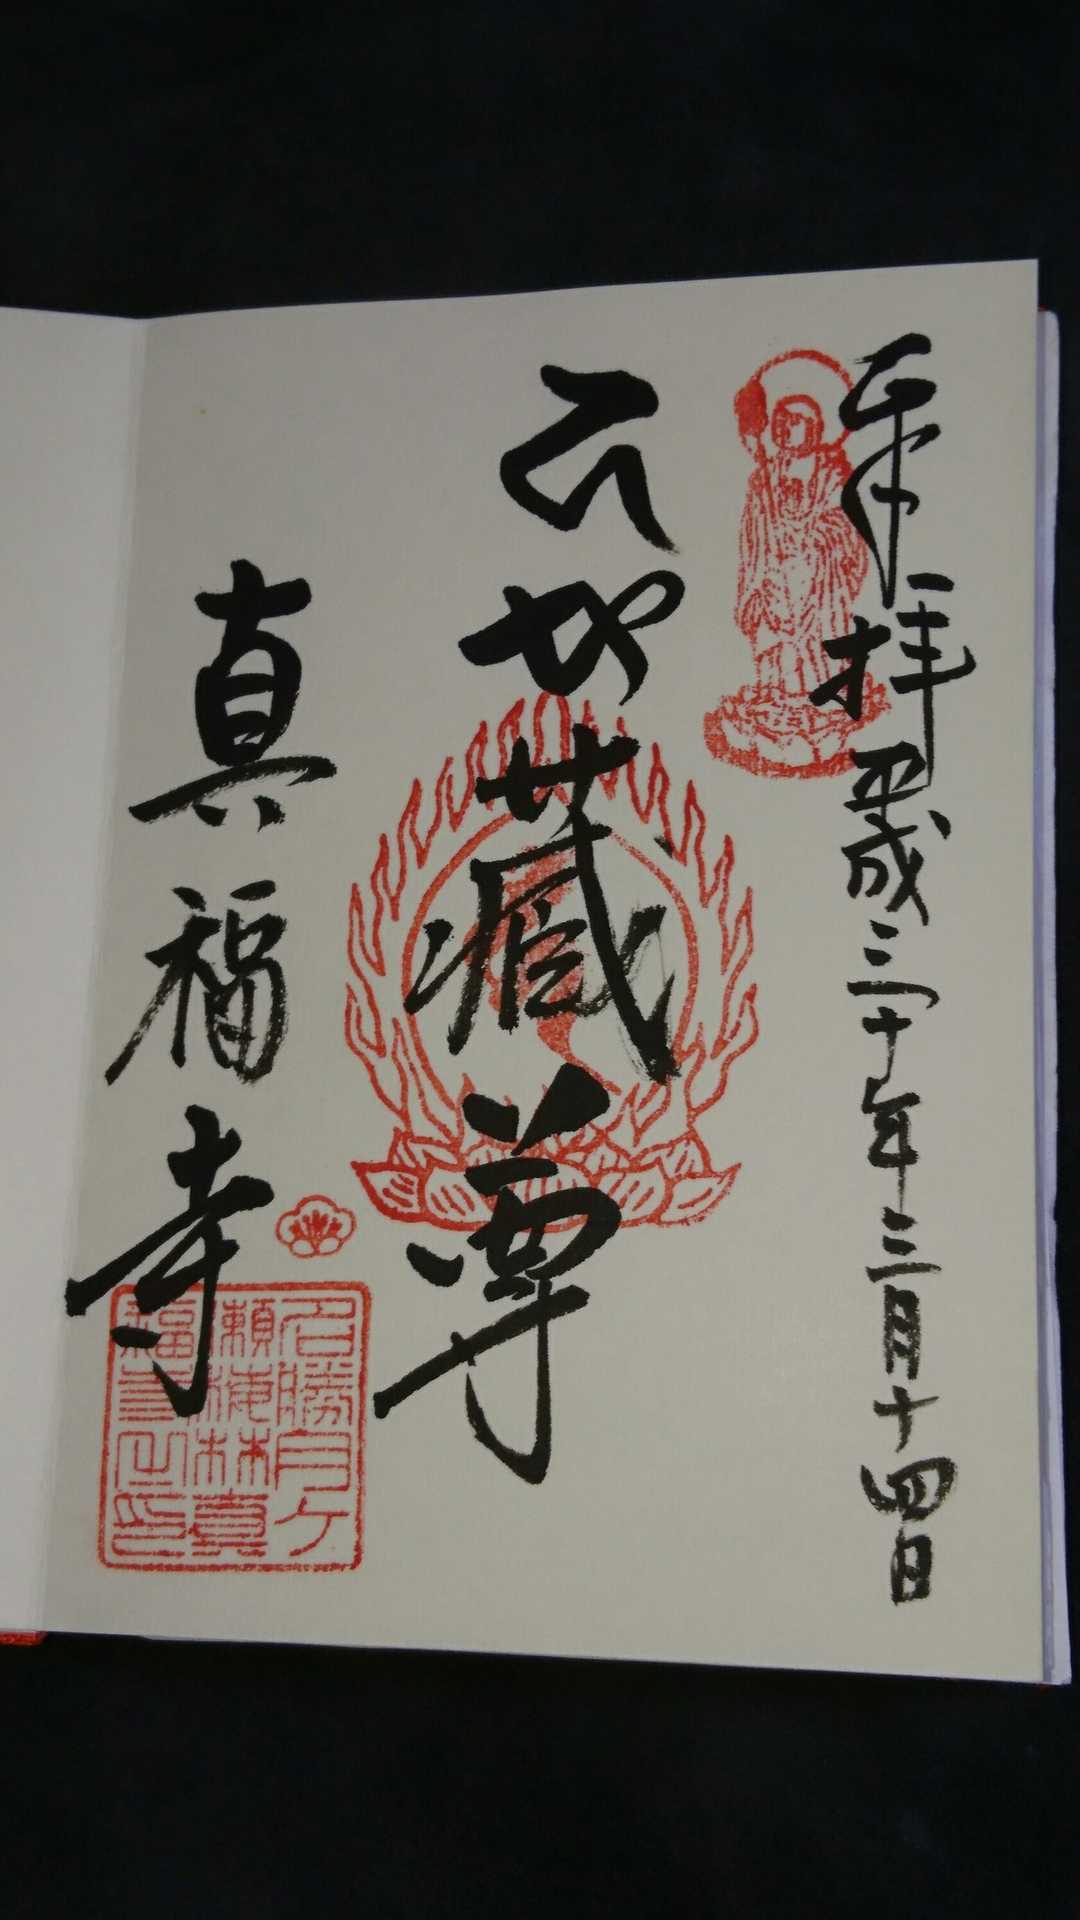 奉拝 平成三十年三月十四日
地蔵尊
真福寺
名勝月ケ
瀬梅林真
福寺之印